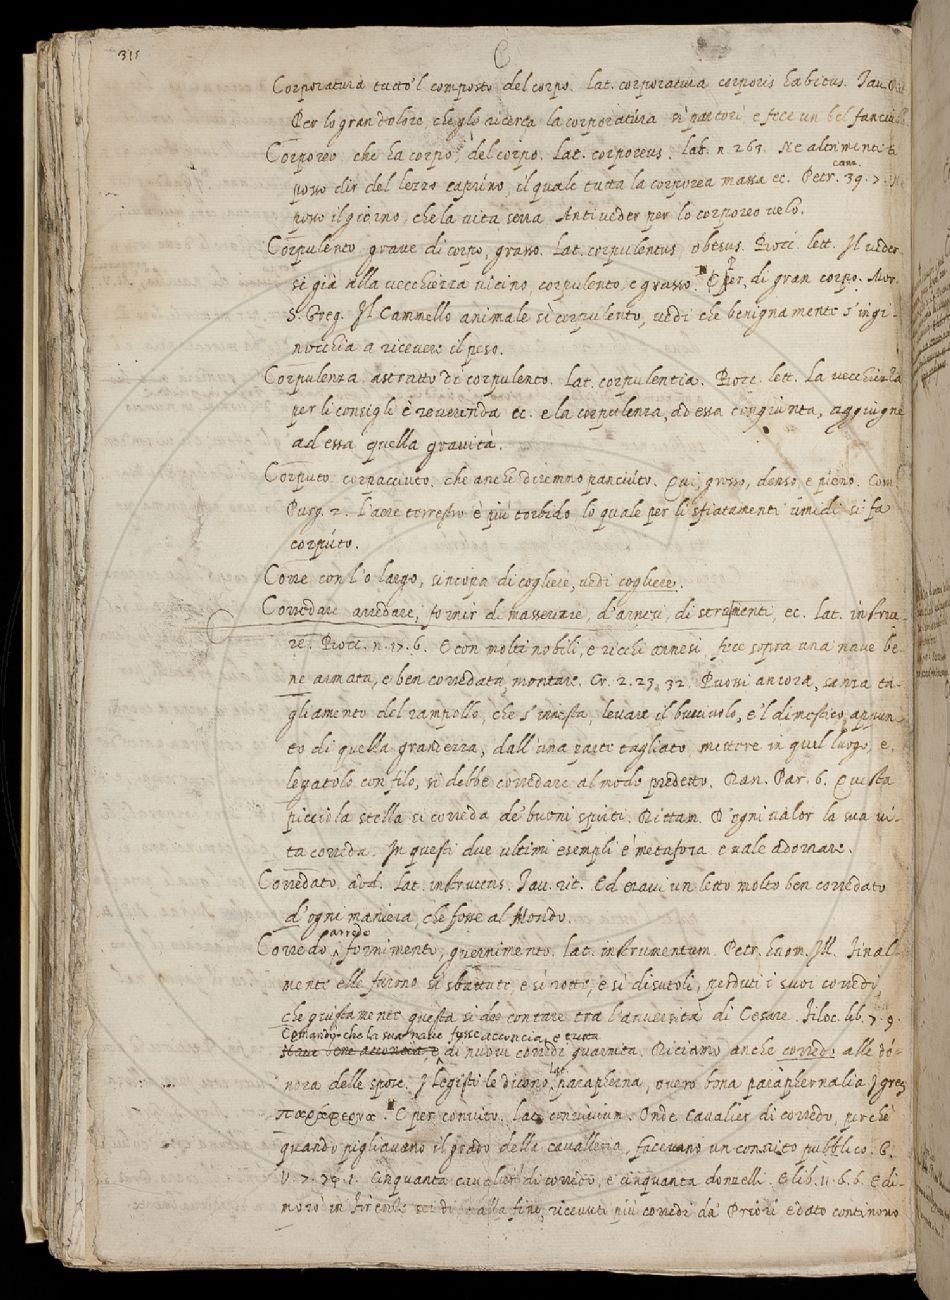 315
C
Corporatura tutto'l composto del corpo. Lat. corporatura corporis habitus. Tav. Rit.
Per lo gran dolore, che gli ricerca la corporatura si partorì, e fece un bel fanciullo
Corporeo, che ha corpo, del corpo. Lat. corporeus. Lab. n 263. Ne altrimenti ti
canz.
posso dir del lezzo caprino, il quale tutta la corporea massa ec. Petr. 39. 7.
posso il giorno, che la vita serra Antiveder per lo corporeo velo.
Corpulento, grave di corpo, grasso. Lat. corpulentus, obesus. Bocc. lett. Il veder
si già alla vecchiezza vicino, corpulento, e grasso. E per, di gran corpo. Mor.
S. Greg. Il Cammello animale sì corpulento, vedi che benignamente s'ingi-
nocchia a ricevere il peso.
Corpulenza astratto di corpulento. Lat. corpulentia. Bocc. lett. La vecchiezza
per li consigli è reverenda ec. e la corpulenza, ad essa congiunta, aggiugne
ad essa quella gravità.
Corputo corpacciuto, che anche diremmo panciuto. Qui, grosso, denso e pieno. Com.
Purg. 2. L'aere terrestro è più torbido, lo quale per li sfiatamenti umidi si fa
corputo.
Corre con l'o largo, sincopa di cogliere, vedi cogliere.
Corredare arredare, fornir di masserizie, d'arnesi, di strumenti, ec. lat. instrue-
re. Bocc. n. 17. 6. E con molti nobili, e ricchi arnesi, fece sopra una nave be-
ne armata, e ben corredata, montare. Cr. 2. 23. 32. Puossi ancora, sanza ta-
gliamento del rampollo, che s'innesta, levare il bucciuolo, e'l dimestico, appun-
to di quella grandezza, dall'una parte tagliato mettere in quel luogo, e,
legatolo con filo, si debbe corredare al modo predetto. Dan. Par. 6. Questa
picciola stella si correda de' buoni spirti. Dittam. D'ogni valor la sua vi-
ta correda. In questi due ultimi esempli è metafora e vale adornare.
Corredato add. Lat. instructus. Tav. rit. Ed eravi un letto molto ben corredato
d'ogni maniera, che fosse al Mondo.
arredo
Corredo, fornimento, guernimento. Lat. instrumentum. Petr. huom. Ill. Final-
mente elle furono sì sbattute, e sì rotte, e sì disutoli, perduti i suoi corredi,
che giustamente questa si dee contare tra l'avversità di Cesare. Filoc. lib. 7. 9.
Comandò, che la sua nave fusse acconcia, e tutta
di nuovi corredi guarnita. Diciamo anche corredi alle do-
nora delle spose. I Legisti le dicono, lat. parapherna, overo bona paraphernalia I greci
παράφερνα. E per convito. lat. convivium. Onde Cavalier di corredo, perchè
quando pigliavano il grado della cavalleria, facevano un convito pubblico. G.
V. 7. 79. 1. Cinquanta cavalier di corredo, e cinquanta donzelli. E lib. 11. 6. 6. E di-
morò in Firenze sei dì e alla fine, ricevuti più corredi da' Priori e dato continovo